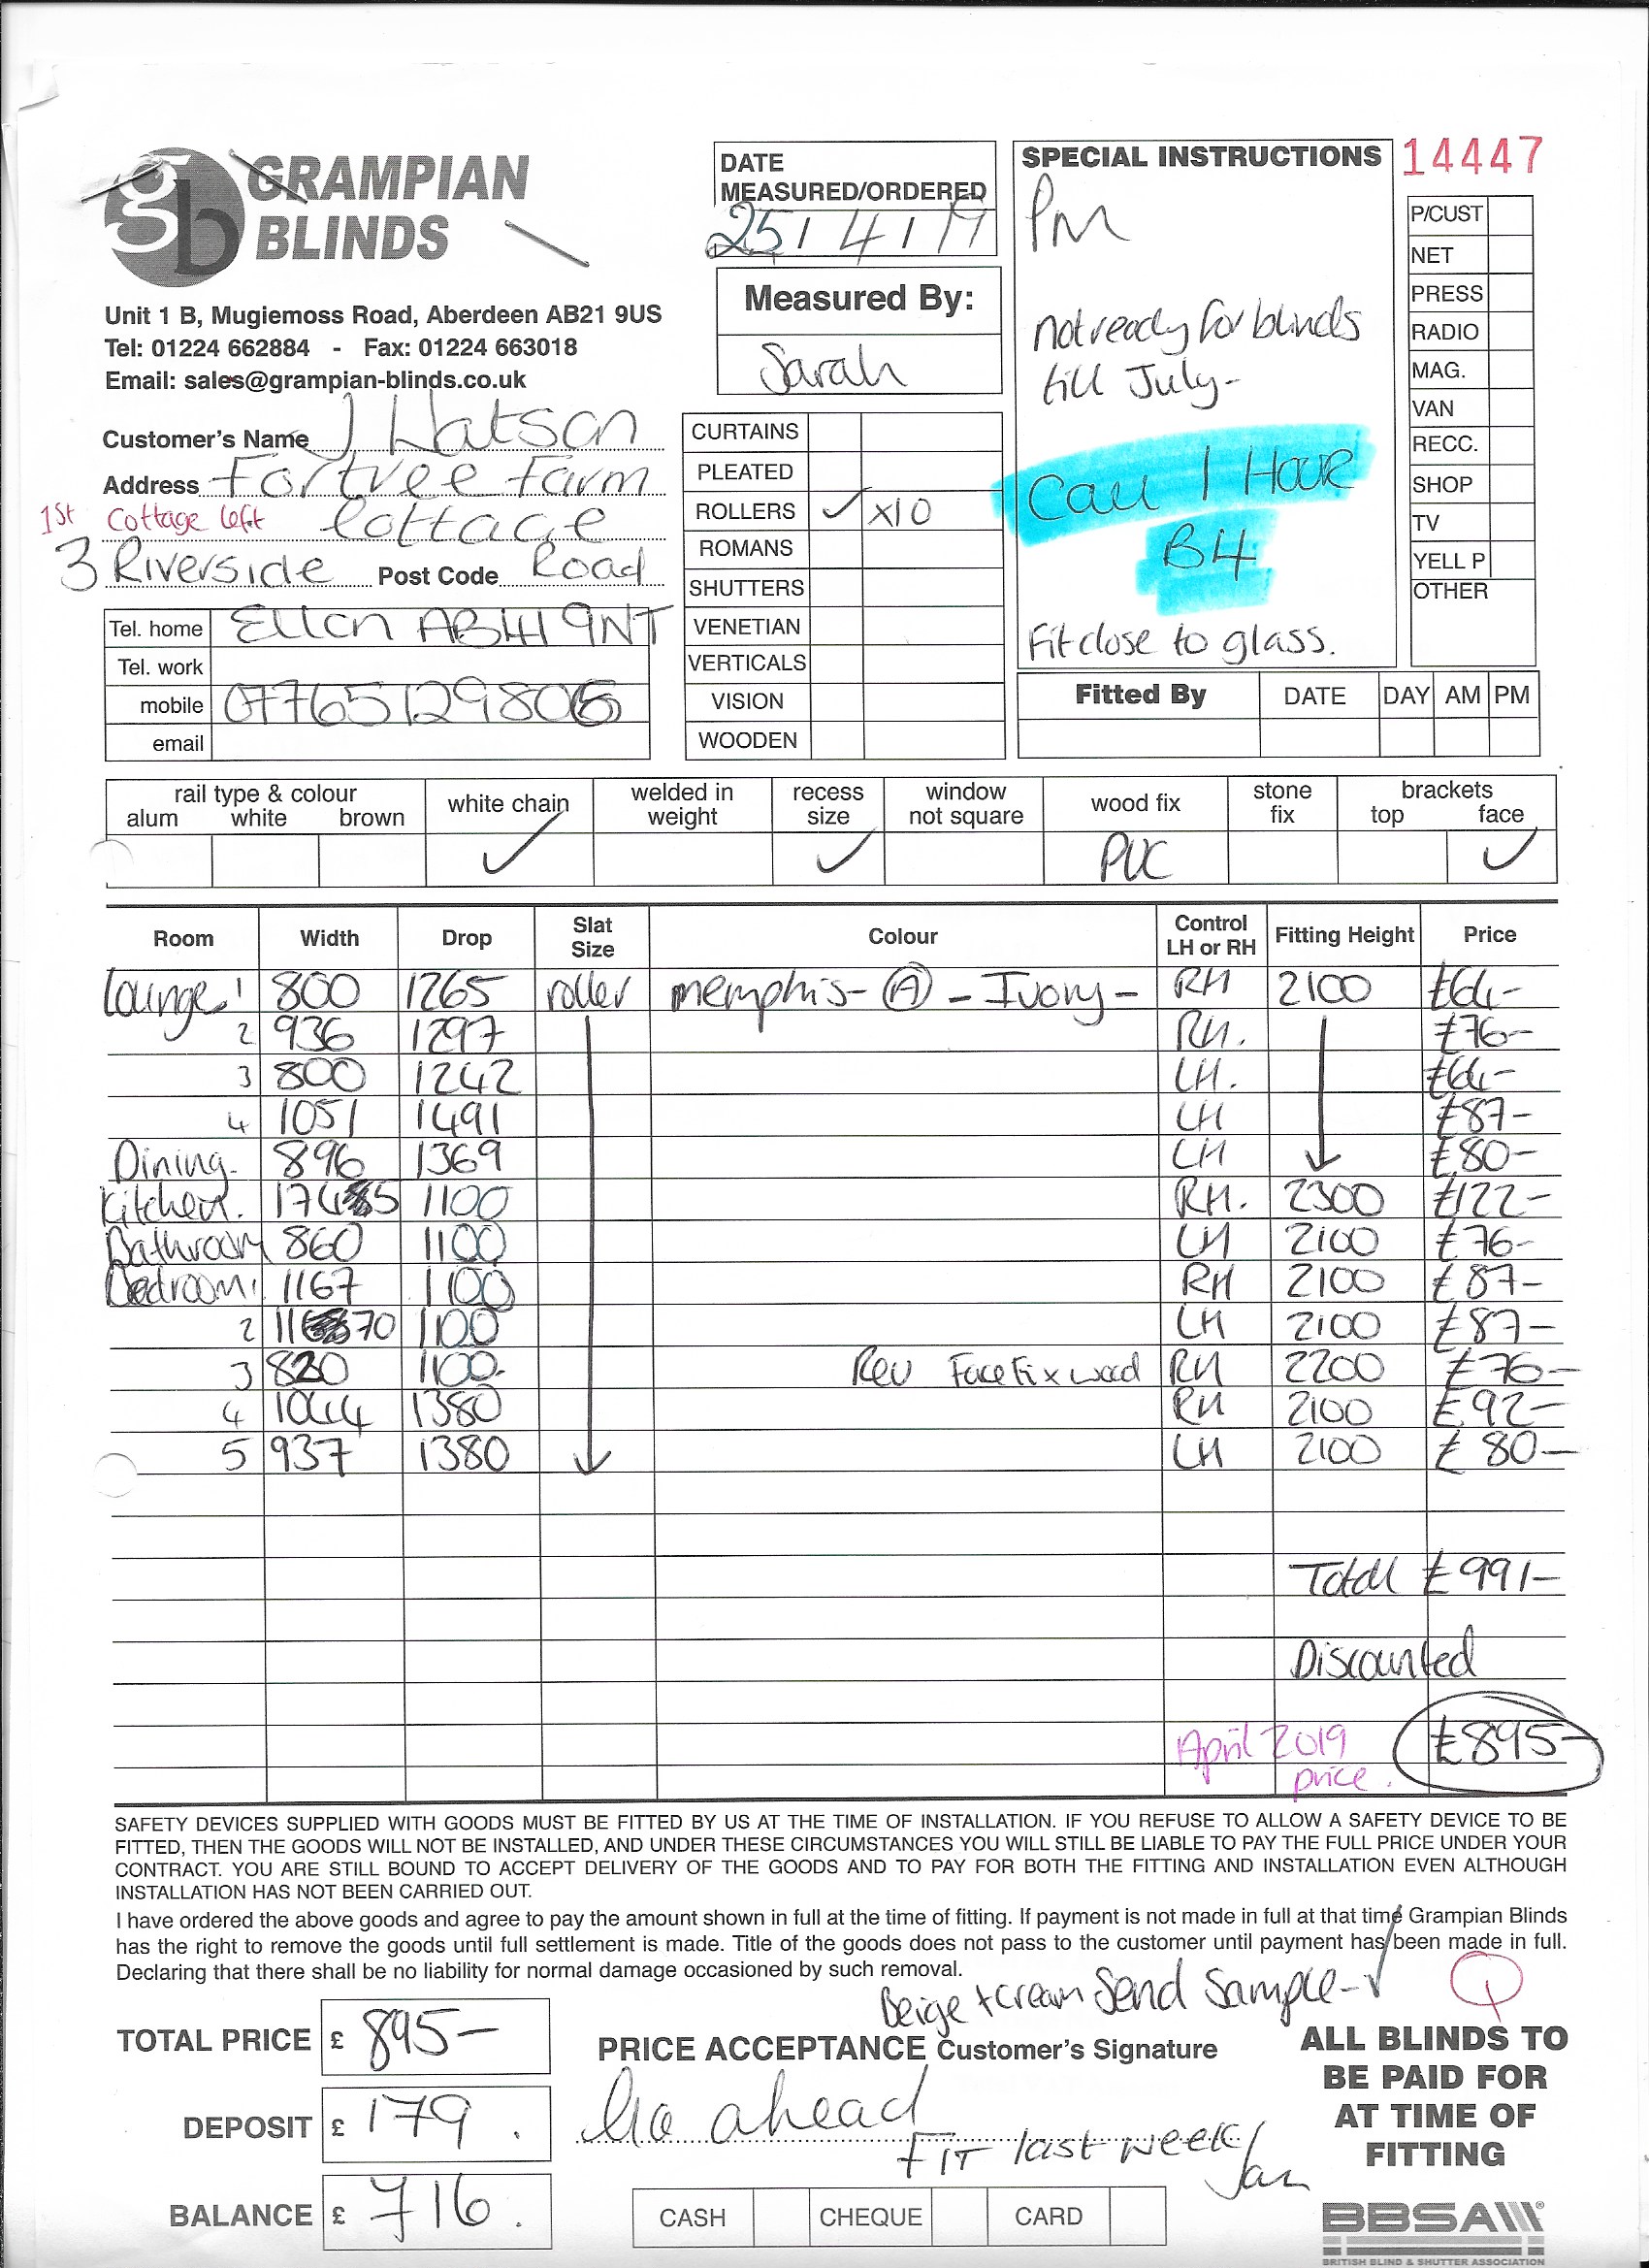 gb GRAMPIAN
BLINDS
Unit 1 B, Mugiemoss Road, Aberdeen AB21 9US
Tel: 01224 662884 - Fax: 01224 663018
Email: sales@grampian-blinds.co.uk
Customer's Name J Watson
Address Fortree Farm
1st Cottage left Cottage
3 Riverside Post Code Road
Tel. home Ellon AB41 9NT
Tel. work
mobile 07765129806
email
DATE
MEASURED/ORDERED
25/4/19
Measured By:
Sarah
CURTAINS
PLEATED
ROLLERS ✓ x10
ROMANS
SHUTTERS
VENETIAN
VERTICALS
VISION
WOODEN
SPECIAL INSTRUCTIONS
Pm
not ready for blinds
till July-
Call 1 Hour
B4
Fit close to glass.
Fitted By DATE DAY AM PM
14447
P/CUST
NET
PRESS
RADIO
MAG.
VAN
RECC.
SHOP
TV
YELL P
OTHER
rail type & colour
alum white brown
white chain ✓
welded in
weight
recess
size ✓
window
not square
wood fix PVC
stone
fix
brackets
top face ✓
Room Width Drop Slat Size Colour Control LH or RH Fitting Height Price
Lounge 1 800 1265 roller memphis- (A) - Ivory- RH 2100 £64-
2 936 1297 RH. £76-
3 800 1242 LH. £64-
4 1051 1491 LH £87-
Dining- 896 1369 LH £80-
Kitchen. 1745 1100 RH. 2300 £122-
Bathroom 860 1100 LH 2100 £76-
Bedroom 1 1167 1100 RH 2100 £87-
2 1170 1100 LH 2100 £87-
3 820 1100- Rev Face Fix wood RH 2200 £76-
4 1044 1380 RH 2100 £92-
5 937 1380 LH 2100 £80-
Total £991-
Discounted
April 2019
price. £895-
SAFETY DEVICES SUPPLIED WITH GOODS MUST BE FITTED BY US AT THE TIME OF INSTALLATION. IF YOU REFUSE TO ALLOW A SAFETY DEVICE TO BE
FITTED, THEN THE GOODS WILL NOT BE INSTALLED, AND UNDER THESE CIRCUMSTANCES YOU WILL STILL BE LIABLE TO PAY THE FULL PRICE UNDER YOUR
CONTRACT. YOU ARE STILL BOUND TO ACCEPT DELIVERY OF THE GOODS AND TO PAY FOR BOTH THE FITTING AND INSTALLATION EVEN ALTHOUGH
INSTALLATION HAS NOT BEEN CARRIED OUT.
I have ordered the above goods and agree to pay the amount shown in full at the time of fitting. If payment is not made in full at that time Grampian Blinds
has the right to remove the goods until full settlement is made. Title of the goods does not pass to the customer until payment has been made in full.
Declaring that there shall be no liability for normal damage occasioned by such removal.
Beige + cream Send Sample- ✓
TOTAL PRICE £ 895-
DEPOSIT £ 179.
BALANCE £ 716.
PRICE ACCEPTANCE Customer's Signature
Go ahead
FIT last week/
Jan
CASH CHEQUE CARD
ALL BLINDS TO
BE PAID FOR
AT TIME OF
FITTING
BBSA
BRITISH BLIND & SHUTTER ASSOCIATION